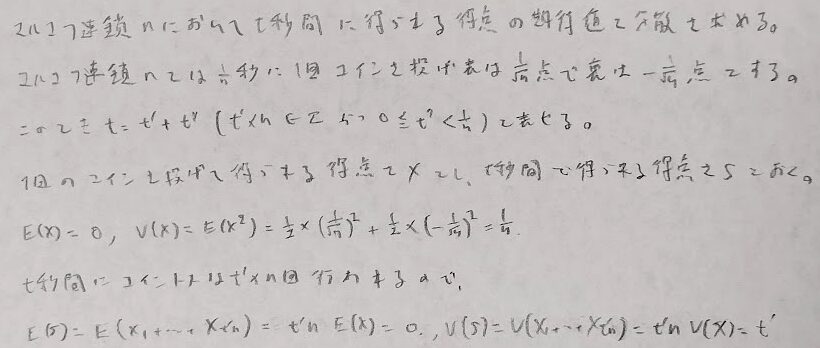 マルコフ連鎖nにおいてt秒間に得られる得点の期待値と分散を求める。
マルコフ連鎖nでは1/n秒に1回コインを投げ表は1/√n点で裏は-1/√n点とする。
このとき t = t' + t'' (t'×n ∈ Z かつ 0 ≤ t'' < 1/n) と表せる。
1回のコインを投げて得られる得点をXとし、t秒間で得られる得点をSとおく。
E(X) = 0, V(X) = E(X²) = 1/2 × (1/√n)² + 1/2 × (-1/√n)² = 1/n.
t秒間にコイントスはt'×n回行われるので、
E(S) = E(X₁+…+Xt'n) = t'n E(X) = 0., V(S) = V(X₁+…+Xt'n) = t'n V(X) = t'